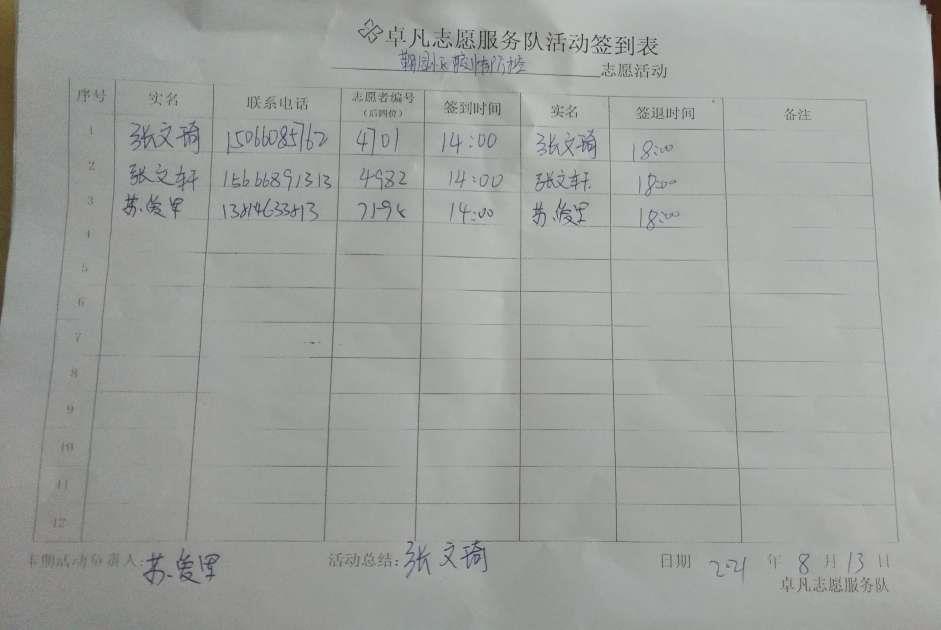 卓凡志愿服务队活动签到表
疫情防控 志愿活动
序号 实名 联系电话 志愿者编号（后四位） 签到时间 实名 签退时间 备注
1 张文琦 15066085762 4701 14:00 张文琦 18:00
2 张文轩 15666891313 4982 14:00 张文轩 18:00
3 苏俊里 13814633813 14:00 苏俊里 18:00
4
5
6
7
8
9
10
11
12
本期活动负责人:苏俊里 活动总结:张文琦 日期 2021 年 8 月 13 日
卓凡志愿服务队